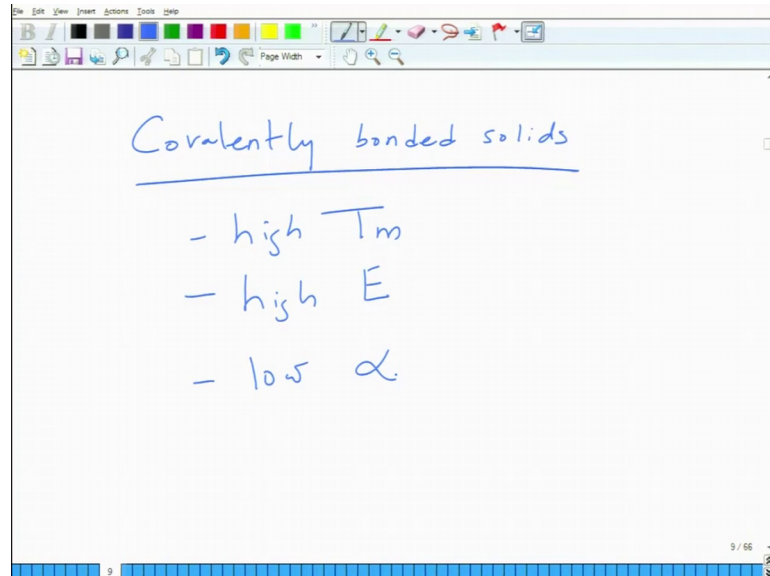 File Edit View Insert Actions Tools Help
B I
Page Width
Covalently bonded solids
- high Tm
- high E
- low α.
9 / 66
9